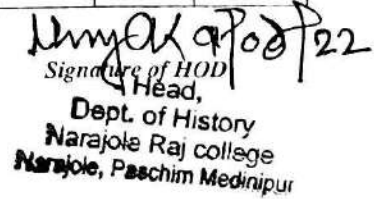 Signature of HOD
Head,
Dept. of History
Narajole Raj college
Narajole, Paschim Medinipur